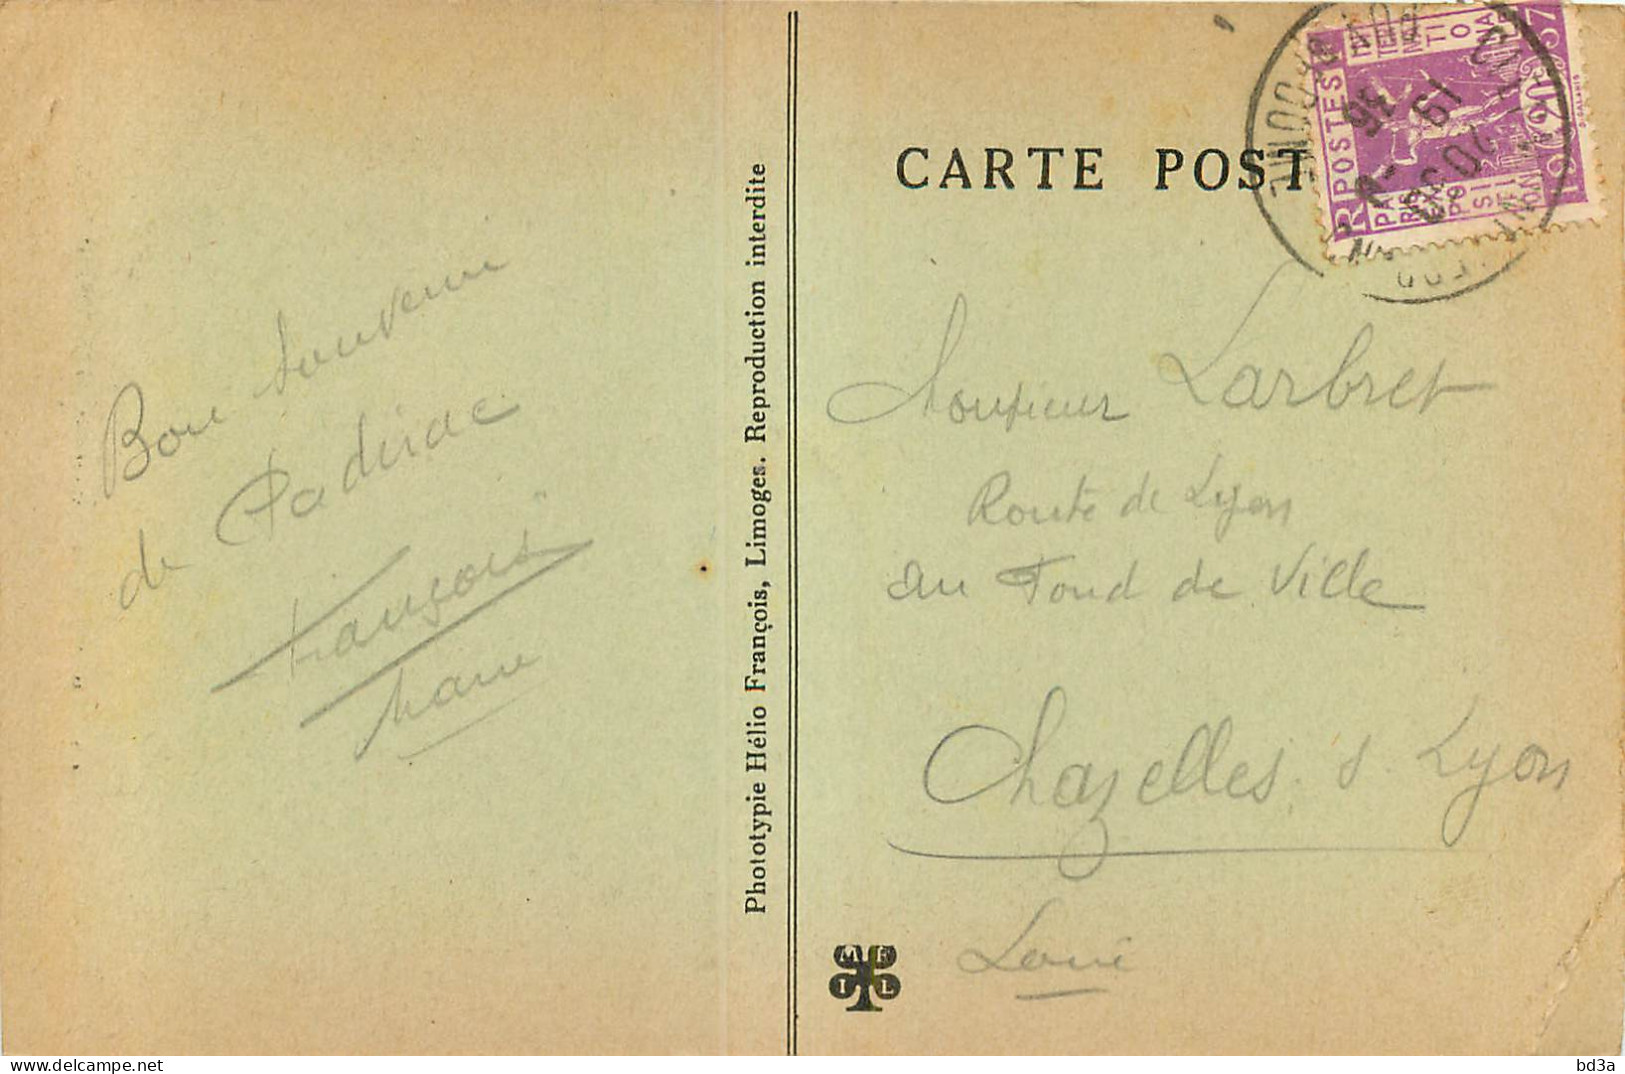 Bon souvenir
de Padirac
François
CARTE POST
Phototypie Hélio François, Limoges. Reproduction interdite
RF POSTES
PARIS 1937
20c
Monsieur Larbret
Route de Lyon
au Fond de Ville
Chazelles s Lyon
Loire
M F
I L
delcampe.net
bd3a